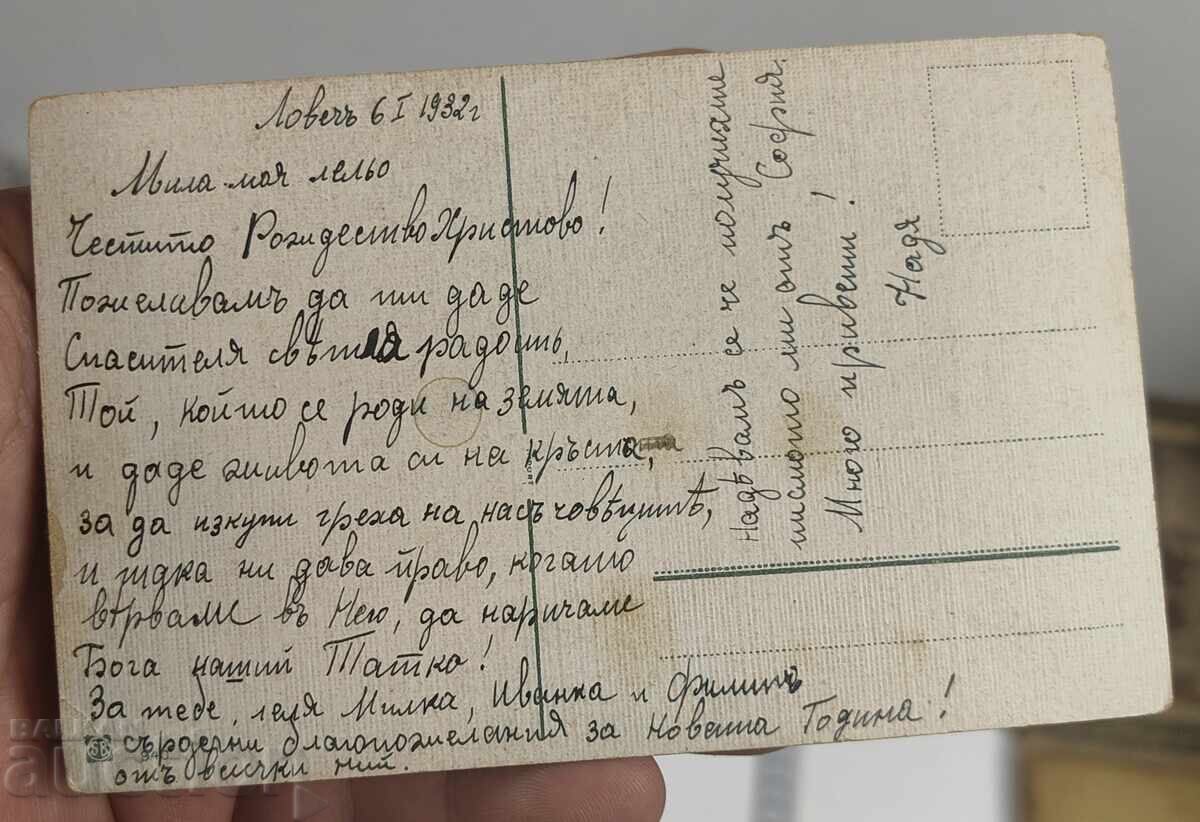 Ловечъ 6 I 1932 г
Мила моя лельо
Честито Рождество Христово!
Пожелавамъ да ти даде
Спасителя свѣтла радость,
Той, който се роди на земята,
и даде живота си на кръста,
за да изкупи греха на насъ човѣцитѣ,
и тъй ни дава право, когато
вѣрваме въ Него, да наричаме
Бога нашия Татко!
За тебе, леля Милка, Иванка и Филипъ
сърдечни благопожелания за Новата Година!
отъ всички ний.
Надѣвамъ се че получихте
писмото ми отъ София.
Много привети!
Надя